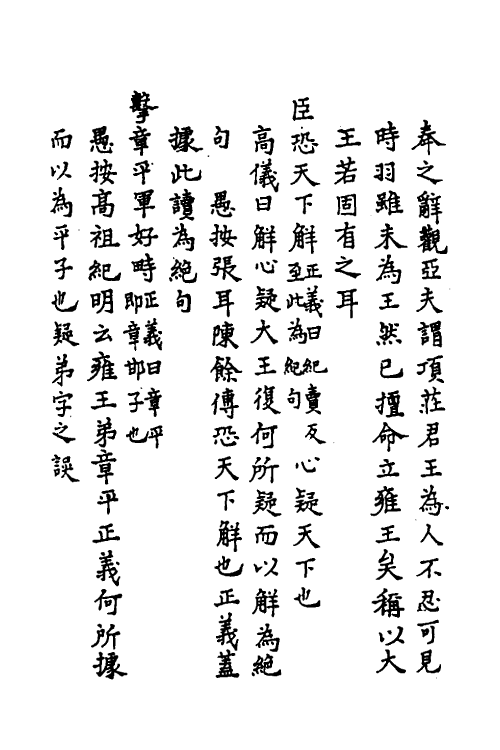 奉之辭觀亞夫謂項莊君王為人不忍可見
時羽雖未為王然已擅命立雍王矣稱以大
王若固有之耳
臣恐天下解正義曰紀賣反至此為絶句心疑天下也
高儀曰解心疑大王復何所疑而以解為絶
句　愚按張耳陳餘傳恐天下解也正義蓋
據此讀為絶句
擊章平軍好畤正義曰章平即章邯子也
愚按高祖紀明云雍王弟章平正義何所據
而以為平子也疑弟字之誤